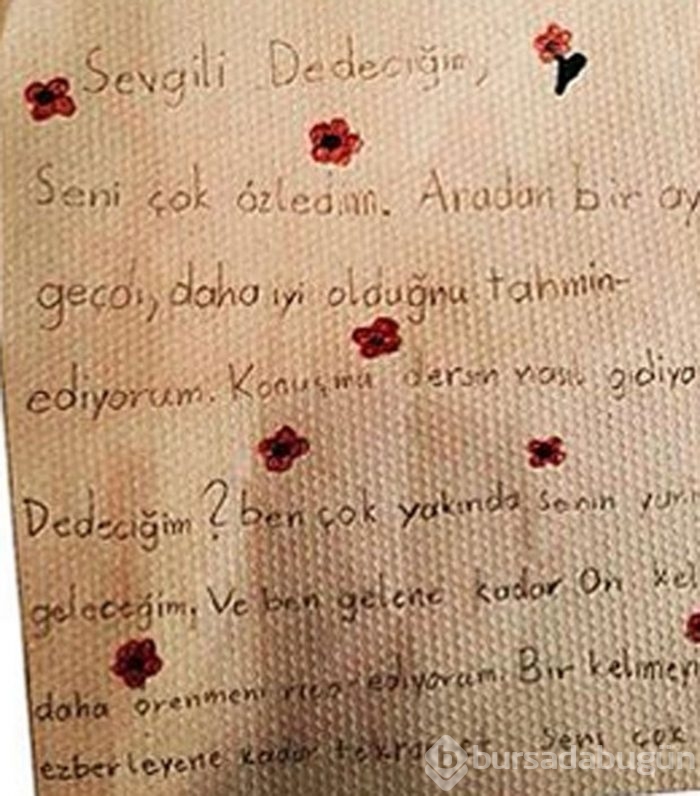 Sevgili Dedeciğim,
Seni çok özledim. Aradan bir ay
geçdi, daha iyi olduğnu tahmin-
ediyorum. Konuşma dersin nasıl gidiyo
Dedeciğim? ben çok yakında senin
geleceğim. Ve ben gelene kadar On kel
daha örenmeni rica ediyorum. Bir kelimeyi
ezberleyene kadar tekrar et seni çok
bursadabugün